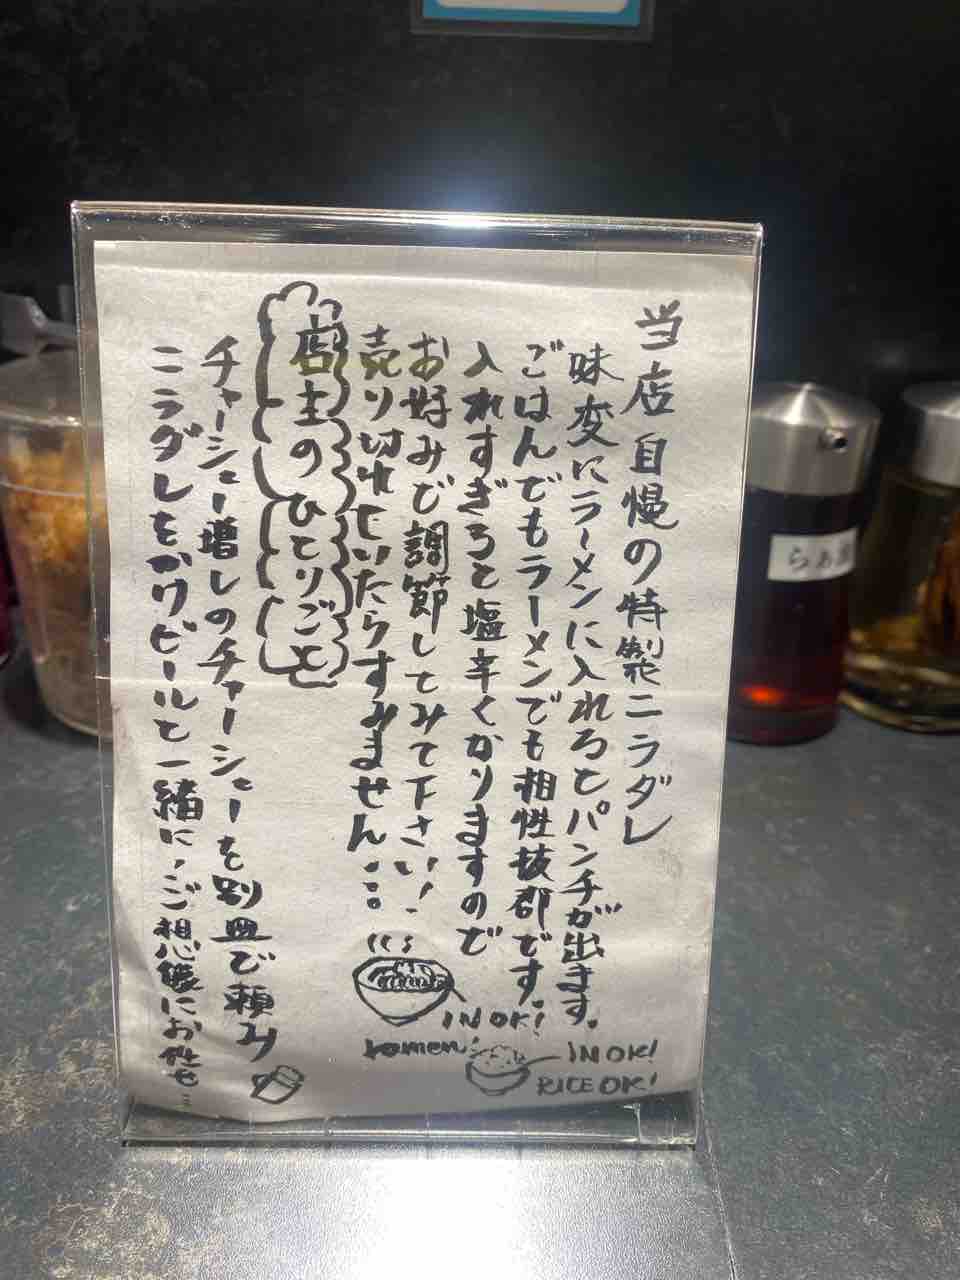 当店自慢の特製ニラダレ
味変にラーメンに入れるとパンチが出ます。
ごはんでもラーメンでも相性抜群です。
入れすぎると塩辛くかりますので
お好みで調節してみて下さい！
売り切れていたらすみません...
店主のひとりごと
チャーシュー増しのチャーシューを別皿で頼み
ニラダレをかけビールと一緒に、ご想像にお任せ...
IN OK!
ramen!
IN OK!
RICE OK!